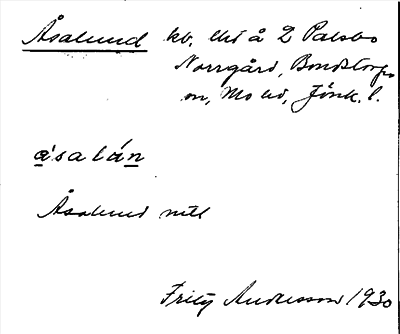 Åsalund kv. Ehd å 2 Palsbo
Norrgård, Bondstorps
sn, Mo hd, Jönk. l.
å̀salán
Åsalund
Fritz Andersson 1930